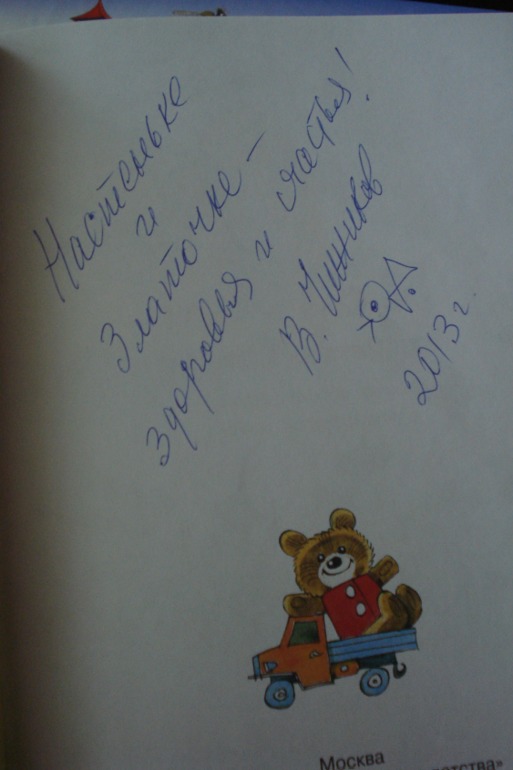 Настеньке
и
Златочке –
здоровья и счастья!
В. Чижиков
2013 г.
Москва